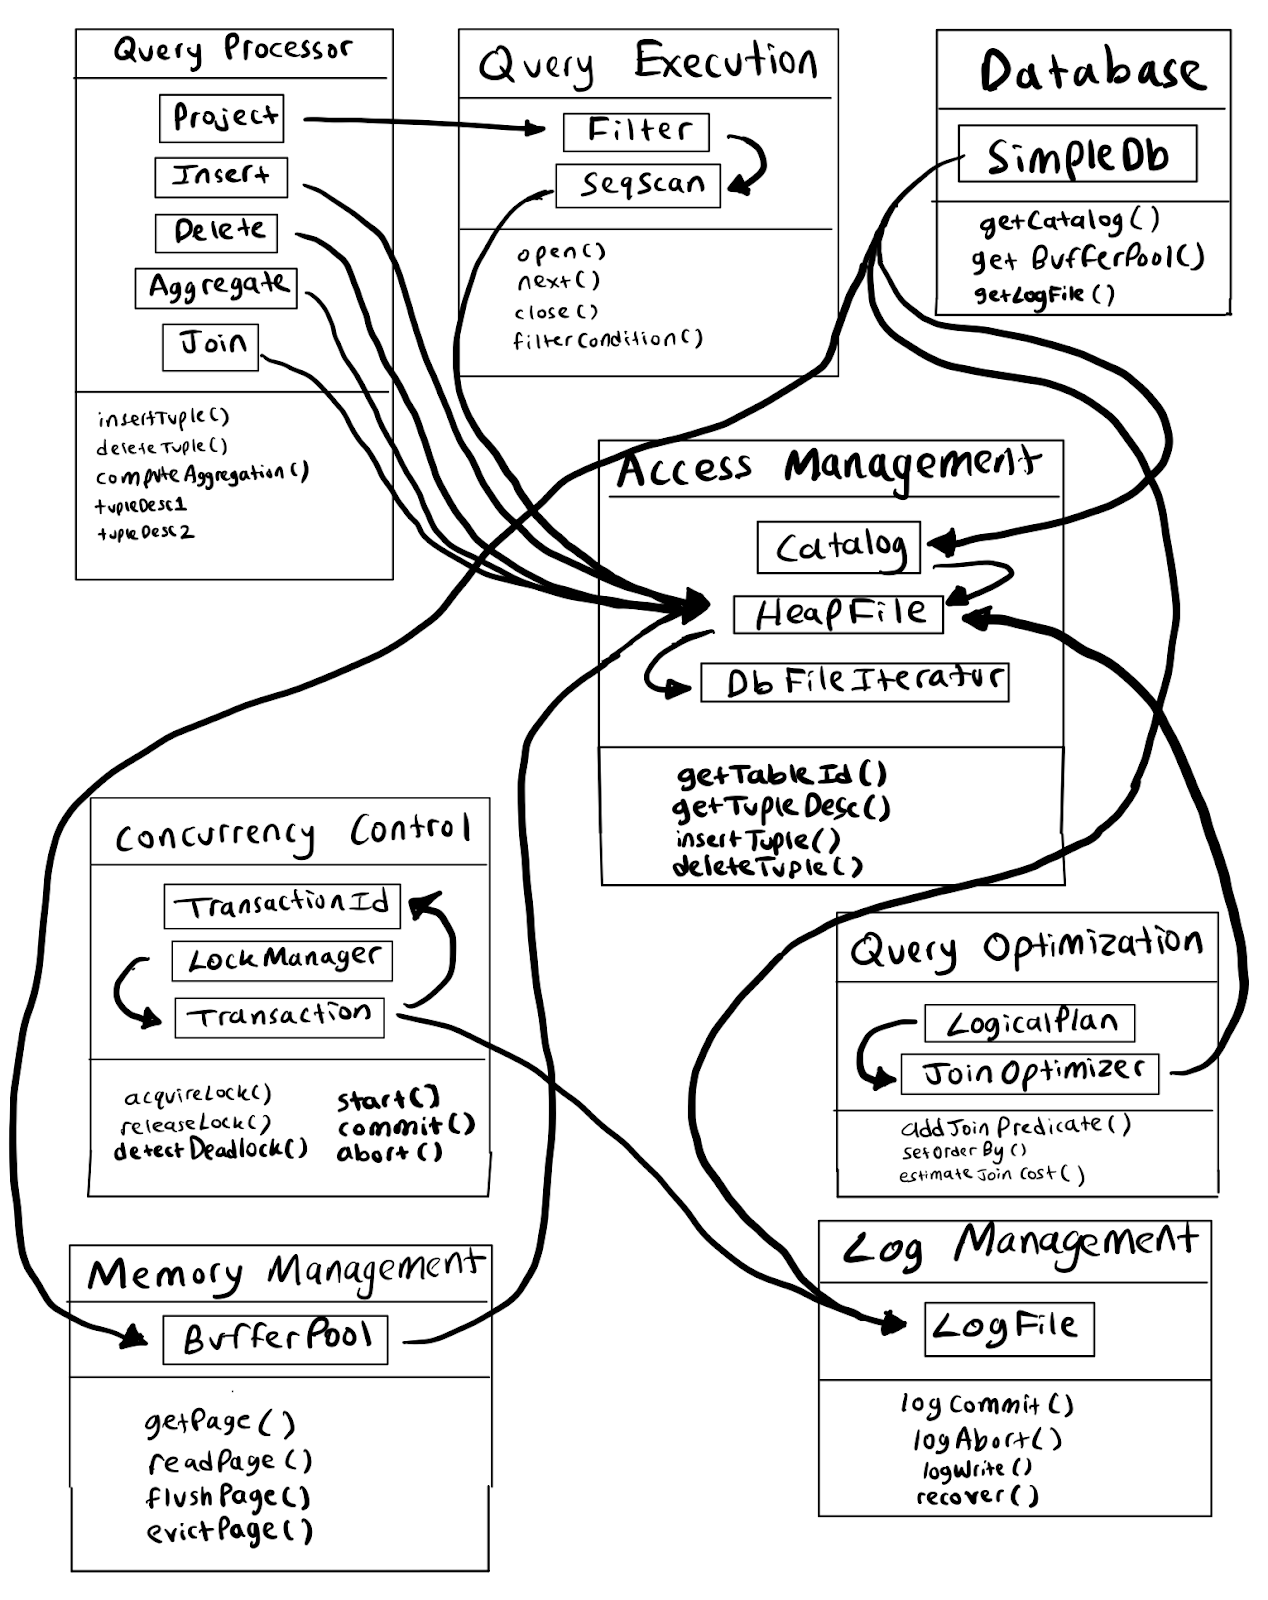 Query Processor
Project
Insert
Delete
Aggregate
Join
insertTuple()
deleteTuple()
computeAggregation()
tupleDesc1
tupleDesc2
Query Execution
Filter
SeqScan
open()
next()
close()
filterCondition()
Database
SimpleDb
getCatalog()
get BufferPool()
getLogFile()
Access Management
Catalog
HeapFile
DbFileIterator
getTableId()
getTupleDesc()
insertTuple()
deleteTuple()
Concurrency Control
TransactionId
LockManager
Transaction
acquireLock()
releaseLock()
detectDeadlock()
start()
commit()
abort()
Query Optimization
LogicalPlan
JoinOptimizer
addJoinPredicate()
setOrderBy()
estimateJoinCost()
Memory Management
BufferPool
getPage()
readPage()
flushPage()
evictPage()
Log Management
LogFile
logCommit()
logAbort()
logWrite()
recover()